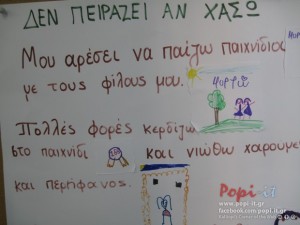 ΔΕΝ ΠΕΙΡΑΖΕΙ ΑΝ ΧΑΣΩ
Μου αρέσει να παίζω παιχνίδια
με τους φίλους μου.
Πολλές φορές κερδίζω
στο παιχνίδι και νιώθω χαρούμε
και περήφανος.
Popi-it
www.popi-it.gr
facebook.com/popi-it.gr